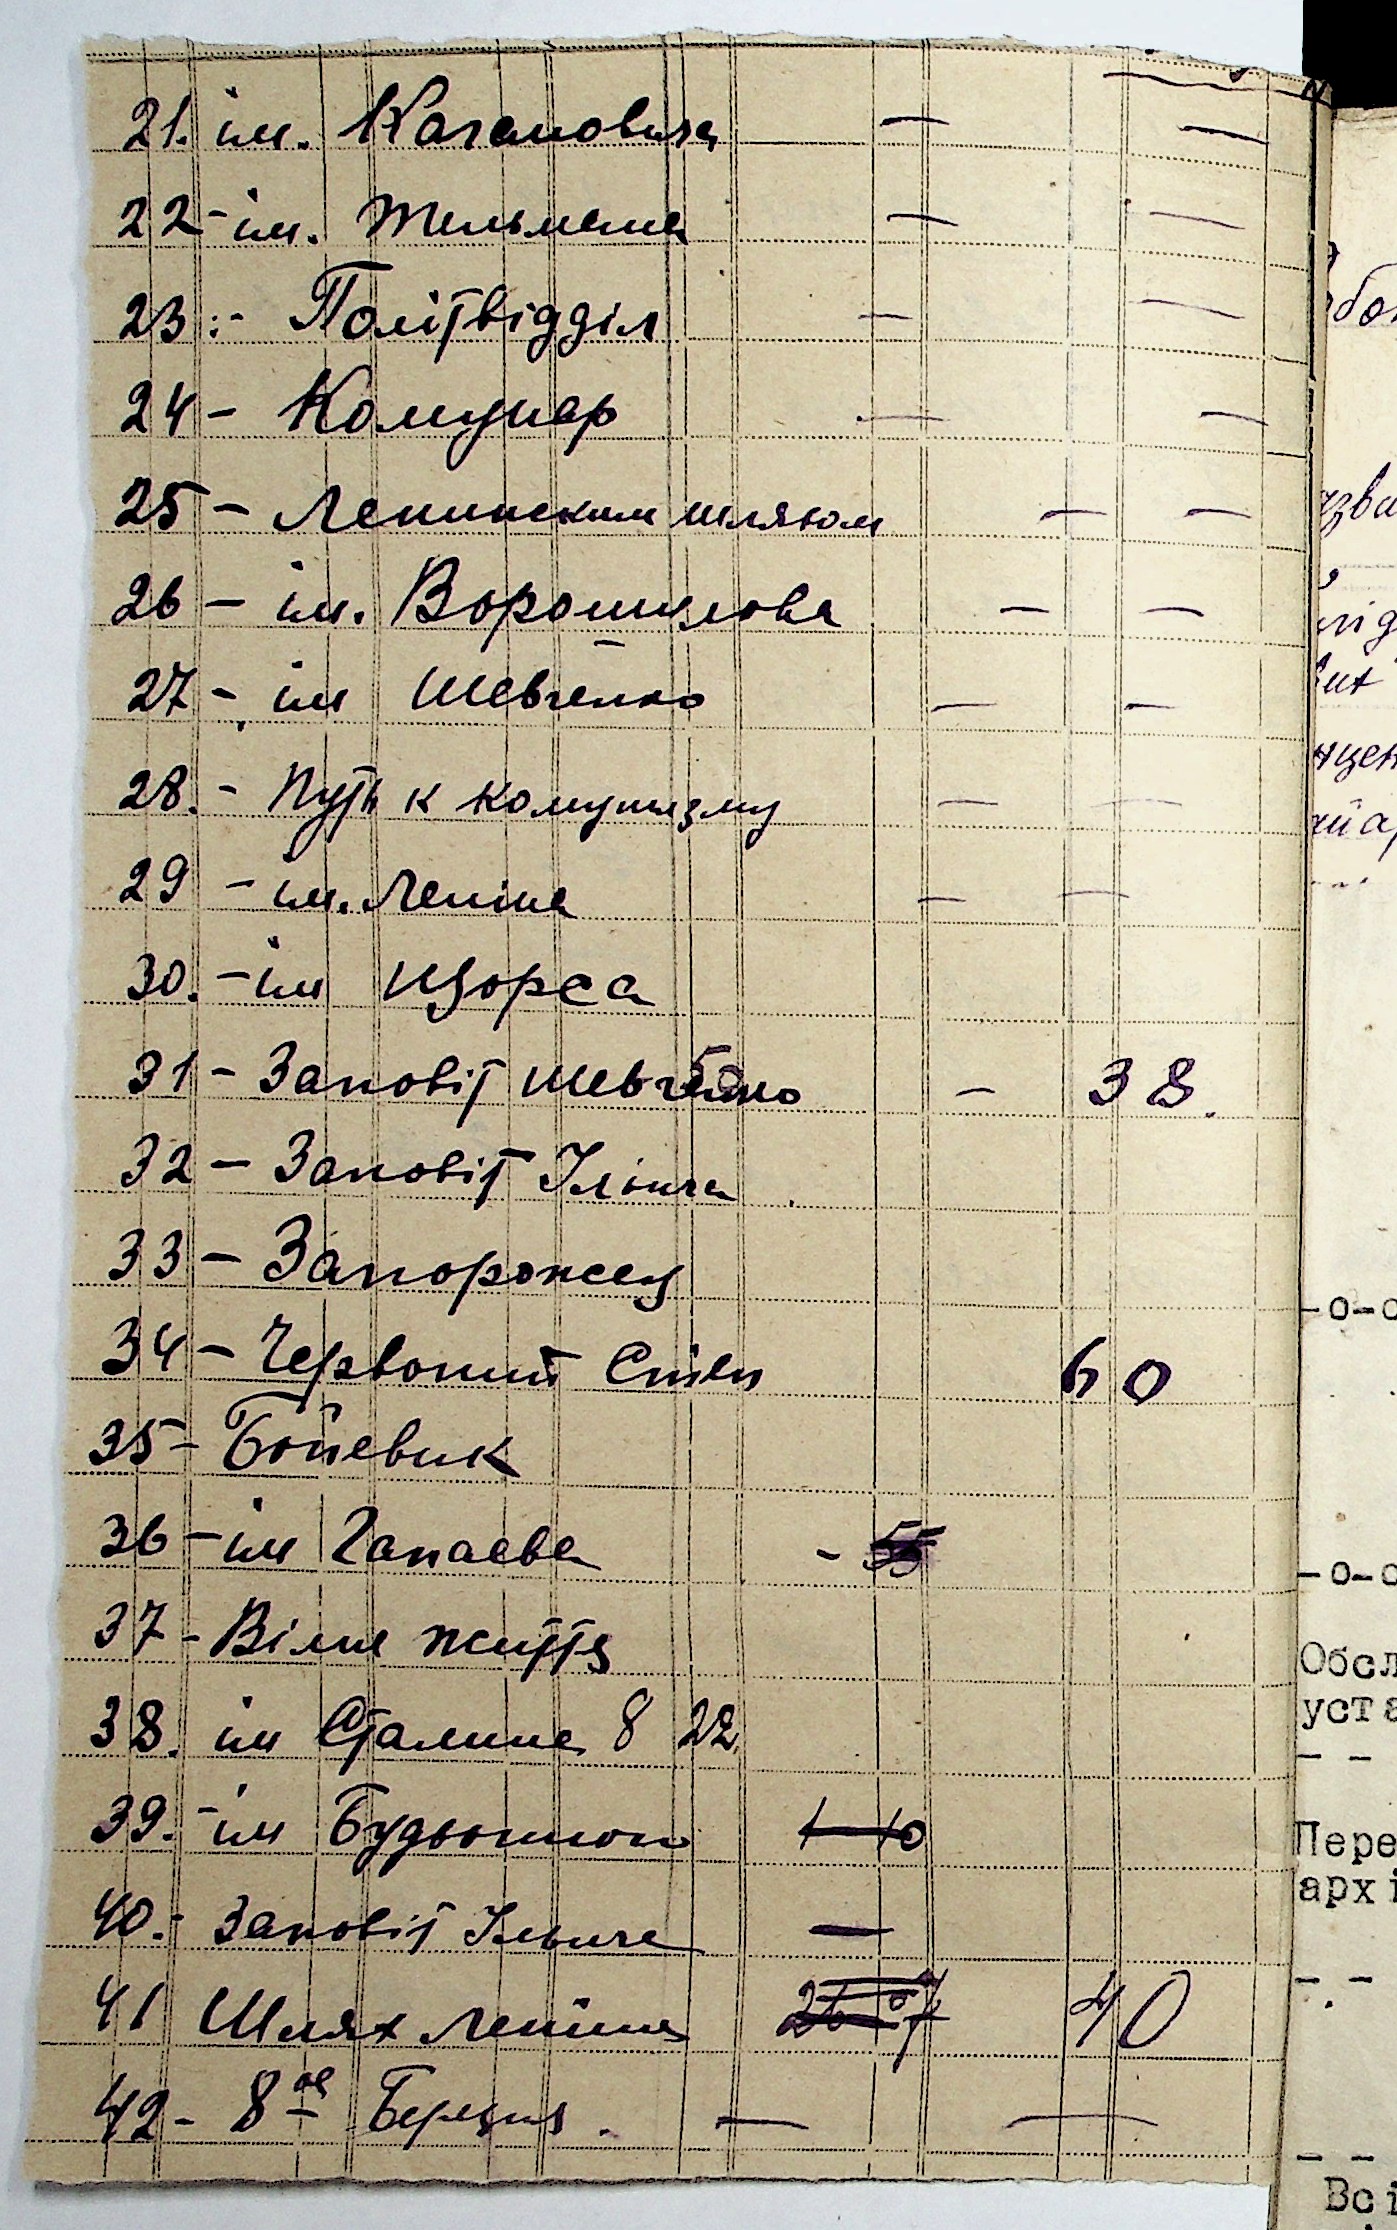 21. ім. Кагановича — —
22 - ім. Тельмана — —
23. - Політвідділ — —
24 - Комунар — —
25 - Ленинским шляхом — —
26 - ім. Ворошилова — —
27 - ім Шевченко — —
28. - Путь к комунизму — —
29 - ім. Леніна — —
30. - ім Щорса
31 - Заповіт Шевченко - 38.
32 - Заповіт Ілічча
33 - Запорожец
34 - Червоний Степ 60
35 - Бойевик
36 - ім Чапаева - 55
37 - Вільне життя
38. ім Сталина 8 22.
39. - ім Будьонного 1 10
40. - Заповіт Ільича —
41 Шлях Леніна 40
42 - 8ое Березня. — —
бот
азва
нцен
-о-о
-о-о
Обсл
уста
- -
Пере
архі
- -
- -
Всі